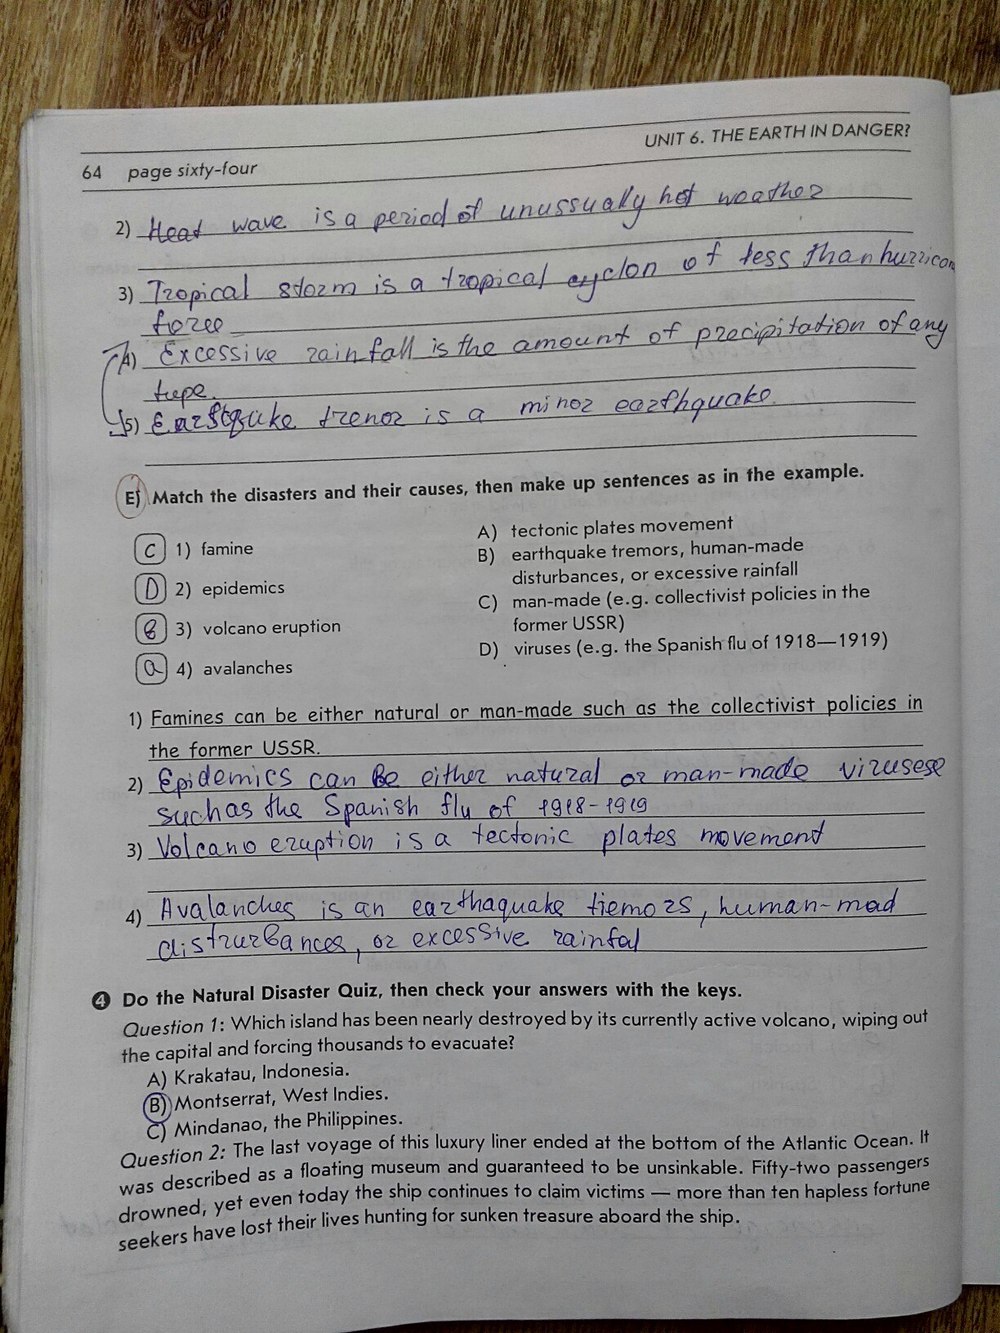 UNIT 6. THE EARTH IN DANGER?
64 page sixty-four
2) Heat wave is a period of unussually hot weather
3) Tropical storm is a tropical cyclon of less than hurricon
force
4) Excessive rainfall is the amount of precipitation of any
tupe.
5) Earstquke trenor is a minor earthquake
E) Match the disasters and their causes, then make up sentences as in the example.
C 1) famine
D 2) epidemics
B 3) volcano eruption
a 4) avalanches
A) tectonic plates movement
B) earthquake tremors, human-made
disturbances, or excessive rainfall
C) man-made (e.g. collectivist policies in the
former USSR)
D) viruses (e.g. the Spanish flu of 1918—1919)
1) Famines can be either natural or man-made such as the collectivist policies in
the former USSR.
2) Epidemics can be either natural or man-made virusese
such as the Spanish flu of 1918-1919
3) Volcano eruption is a tectonic plates movement
4) Avalanches is an earthaquake tiemors, human-mad
distrurbances, or excessive rainfal
4 Do the Natural Disaster Quiz, then check your answers with the keys.
Question 1: Which island has been nearly destroyed by its currently active volcano, wiping out
the capital and forcing thousands to evacuate?
A) Krakatau, Indonesia.
B) Montserrat, West Indies.
C) Mindanao, the Philippines.
Question 2: The last voyage of this luxury liner ended at the bottom of the Atlantic Ocean. It
was described as a floating museum and guaranteed to be unsinkable. Fifty-two passengers
drowned, yet even today the ship continues to claim victims — more than ten hapless fortune
seekers have lost their lives hunting for sunken treasure aboard the ship.